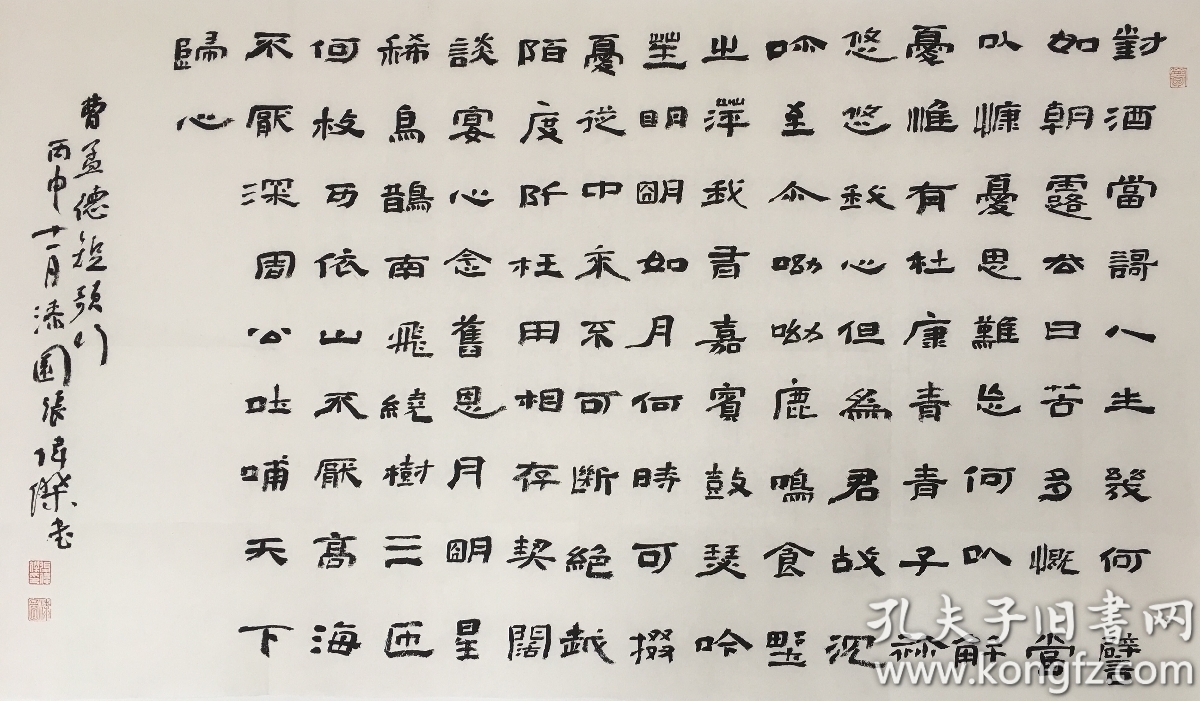 對酒當謌人生幾何譬
如朝露去日苦多慨當
以慷憂思難忘何以解
憂惟有杜康青青子衿
悠悠我心但為君故沉
吟至今呦呦鹿鳴食野
之萍我有嘉賓鼓瑟吟
笙明明如月何時可掇
憂從中來不可斷絕越
陌度阡枉用相存契闊
談宴心念舊恩月明星
稀烏鵲南飛繞樹三匝
何枝可依山不厭高海
不厭深周公吐哺天下
歸心
曹孟德短歌行
丙申十一月漆園張偉傑書
孔夫子旧书网
www.kongfz.com